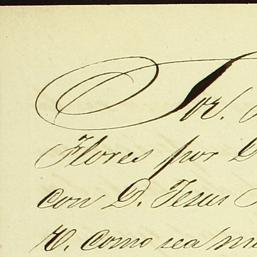 Sor.
Flores por D
con D. Jesus
V. como sea mu